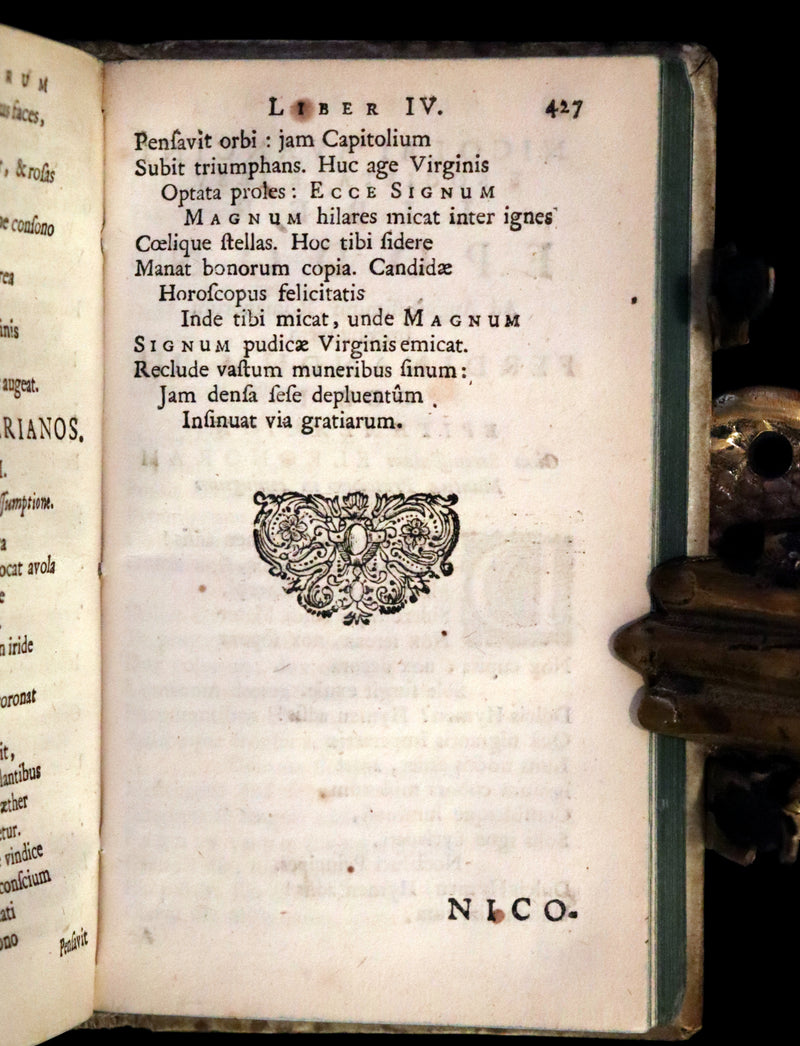 RUM
us faces,
, & rosas
e consono
rea
inis
augeat.
RIANOS.
I.
ſumptione.
a
ocat avola
e
n iride
oronat
it,
lantibus
æther
etur.
vindice
conſcium
ati
ono
Penſavit
LIBER IV. 427
Penſavit orbi : jam Capitolium
Subit triumphans. Huc age Virginis
Optata proles : ECCE SIGNUM
MAGNUM hilares micat inter ignes
Cœlique ſtellas. Hoc tibi ſidere
Manat bonorum copia. Candidæ
Horoſcopus felicitatis
Inde tibi micat, unde MAGNUM
SIGNUM pudicæ Virginis emicat.
Reclude vaſtum muneribus ſinum :
Jam denſa ſeſe depluentûm
Inſinuat via gratiarum.
NICO-